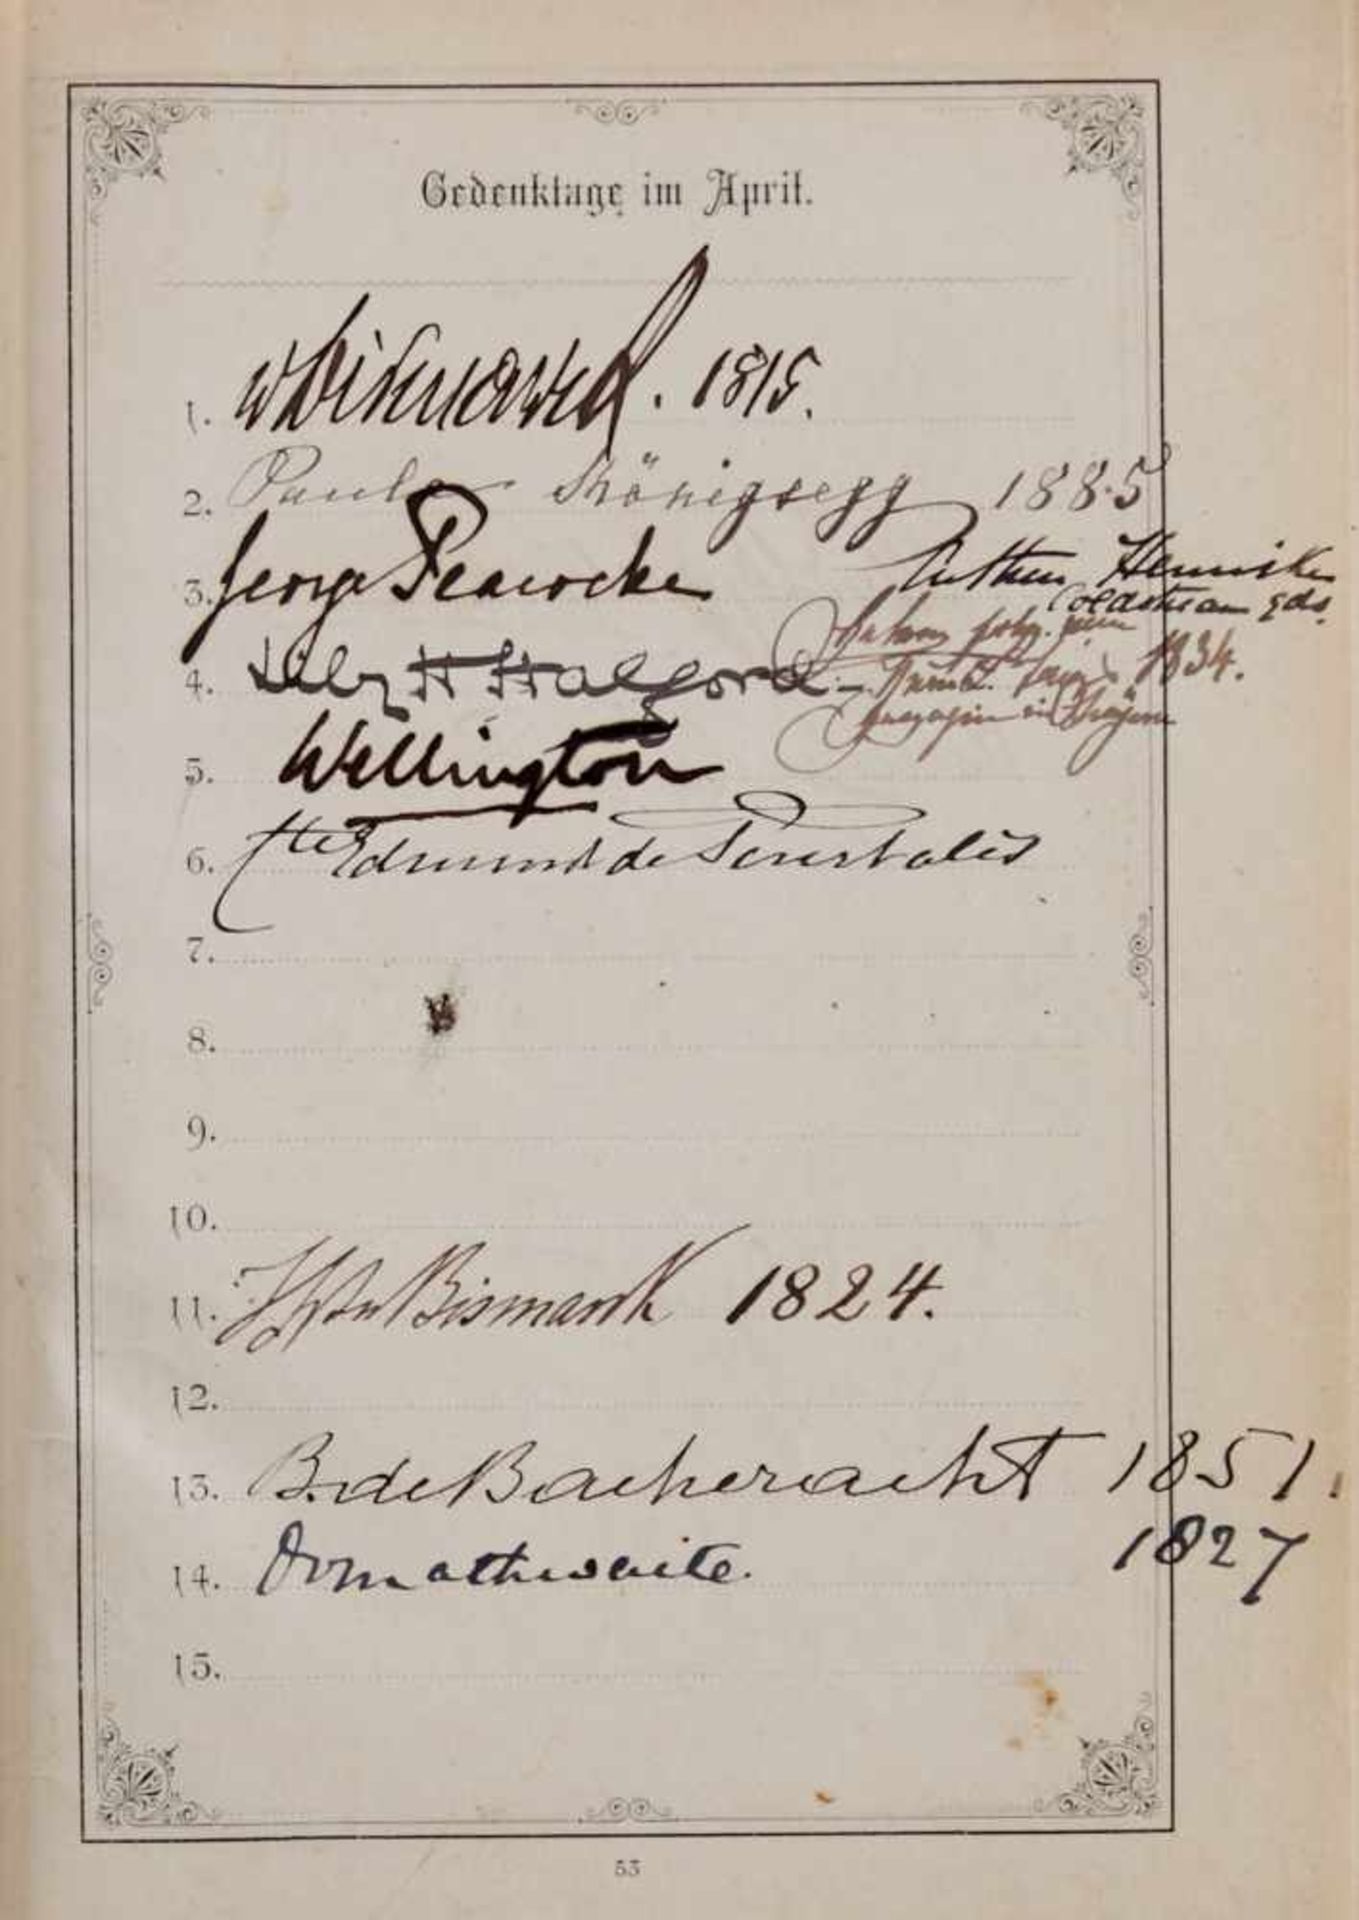 Gedenktage im April.
1. v Bismarck. 1815.
2. Paula Königsegg 1885
3. George Peacocke
Arthur Henniker
Coldstream Gds.
4. Lily H Halford
1834.
5. Wellington
6. Cte Edmund de Pourtalès
7.
8.
9.
10.
11. Bismarck 1824.
12.
13. B. de Bacheracht 1851.
14. Ormathwaite. 1827
15.
53